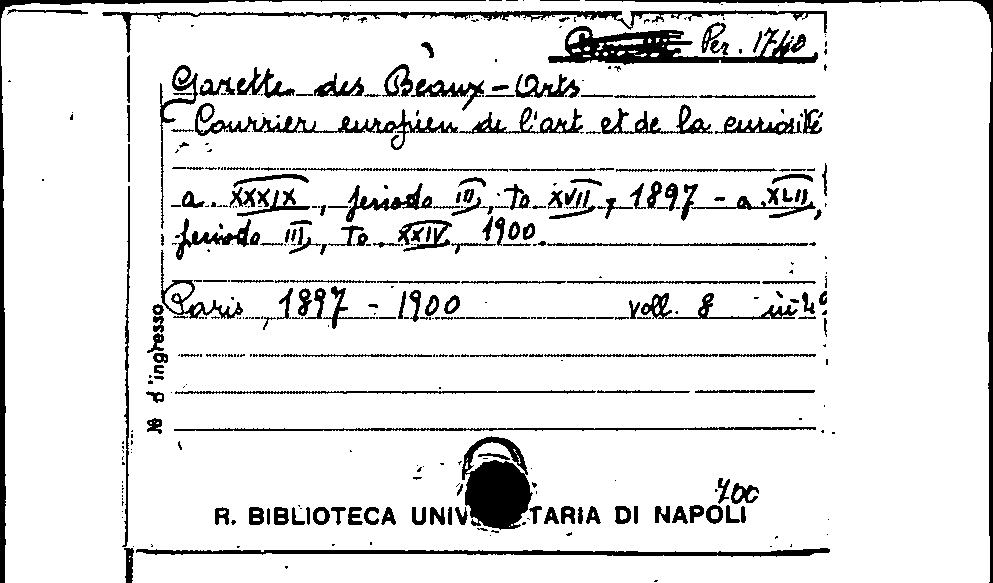 Per. 17/40
Gazette des Beaux-Arts
Courrier européen de l'art et de la curiosité
a. XXXIX, periodo III, To. XVII, 1897 - a. XLII,
periodo III, To. XXIV, 1900.
Paris, 1897 - 1900 voll. 8 in-4°
№ d'ingresso
400
R. BIBLIOTECA UNIV TARIA DI NAPOLI